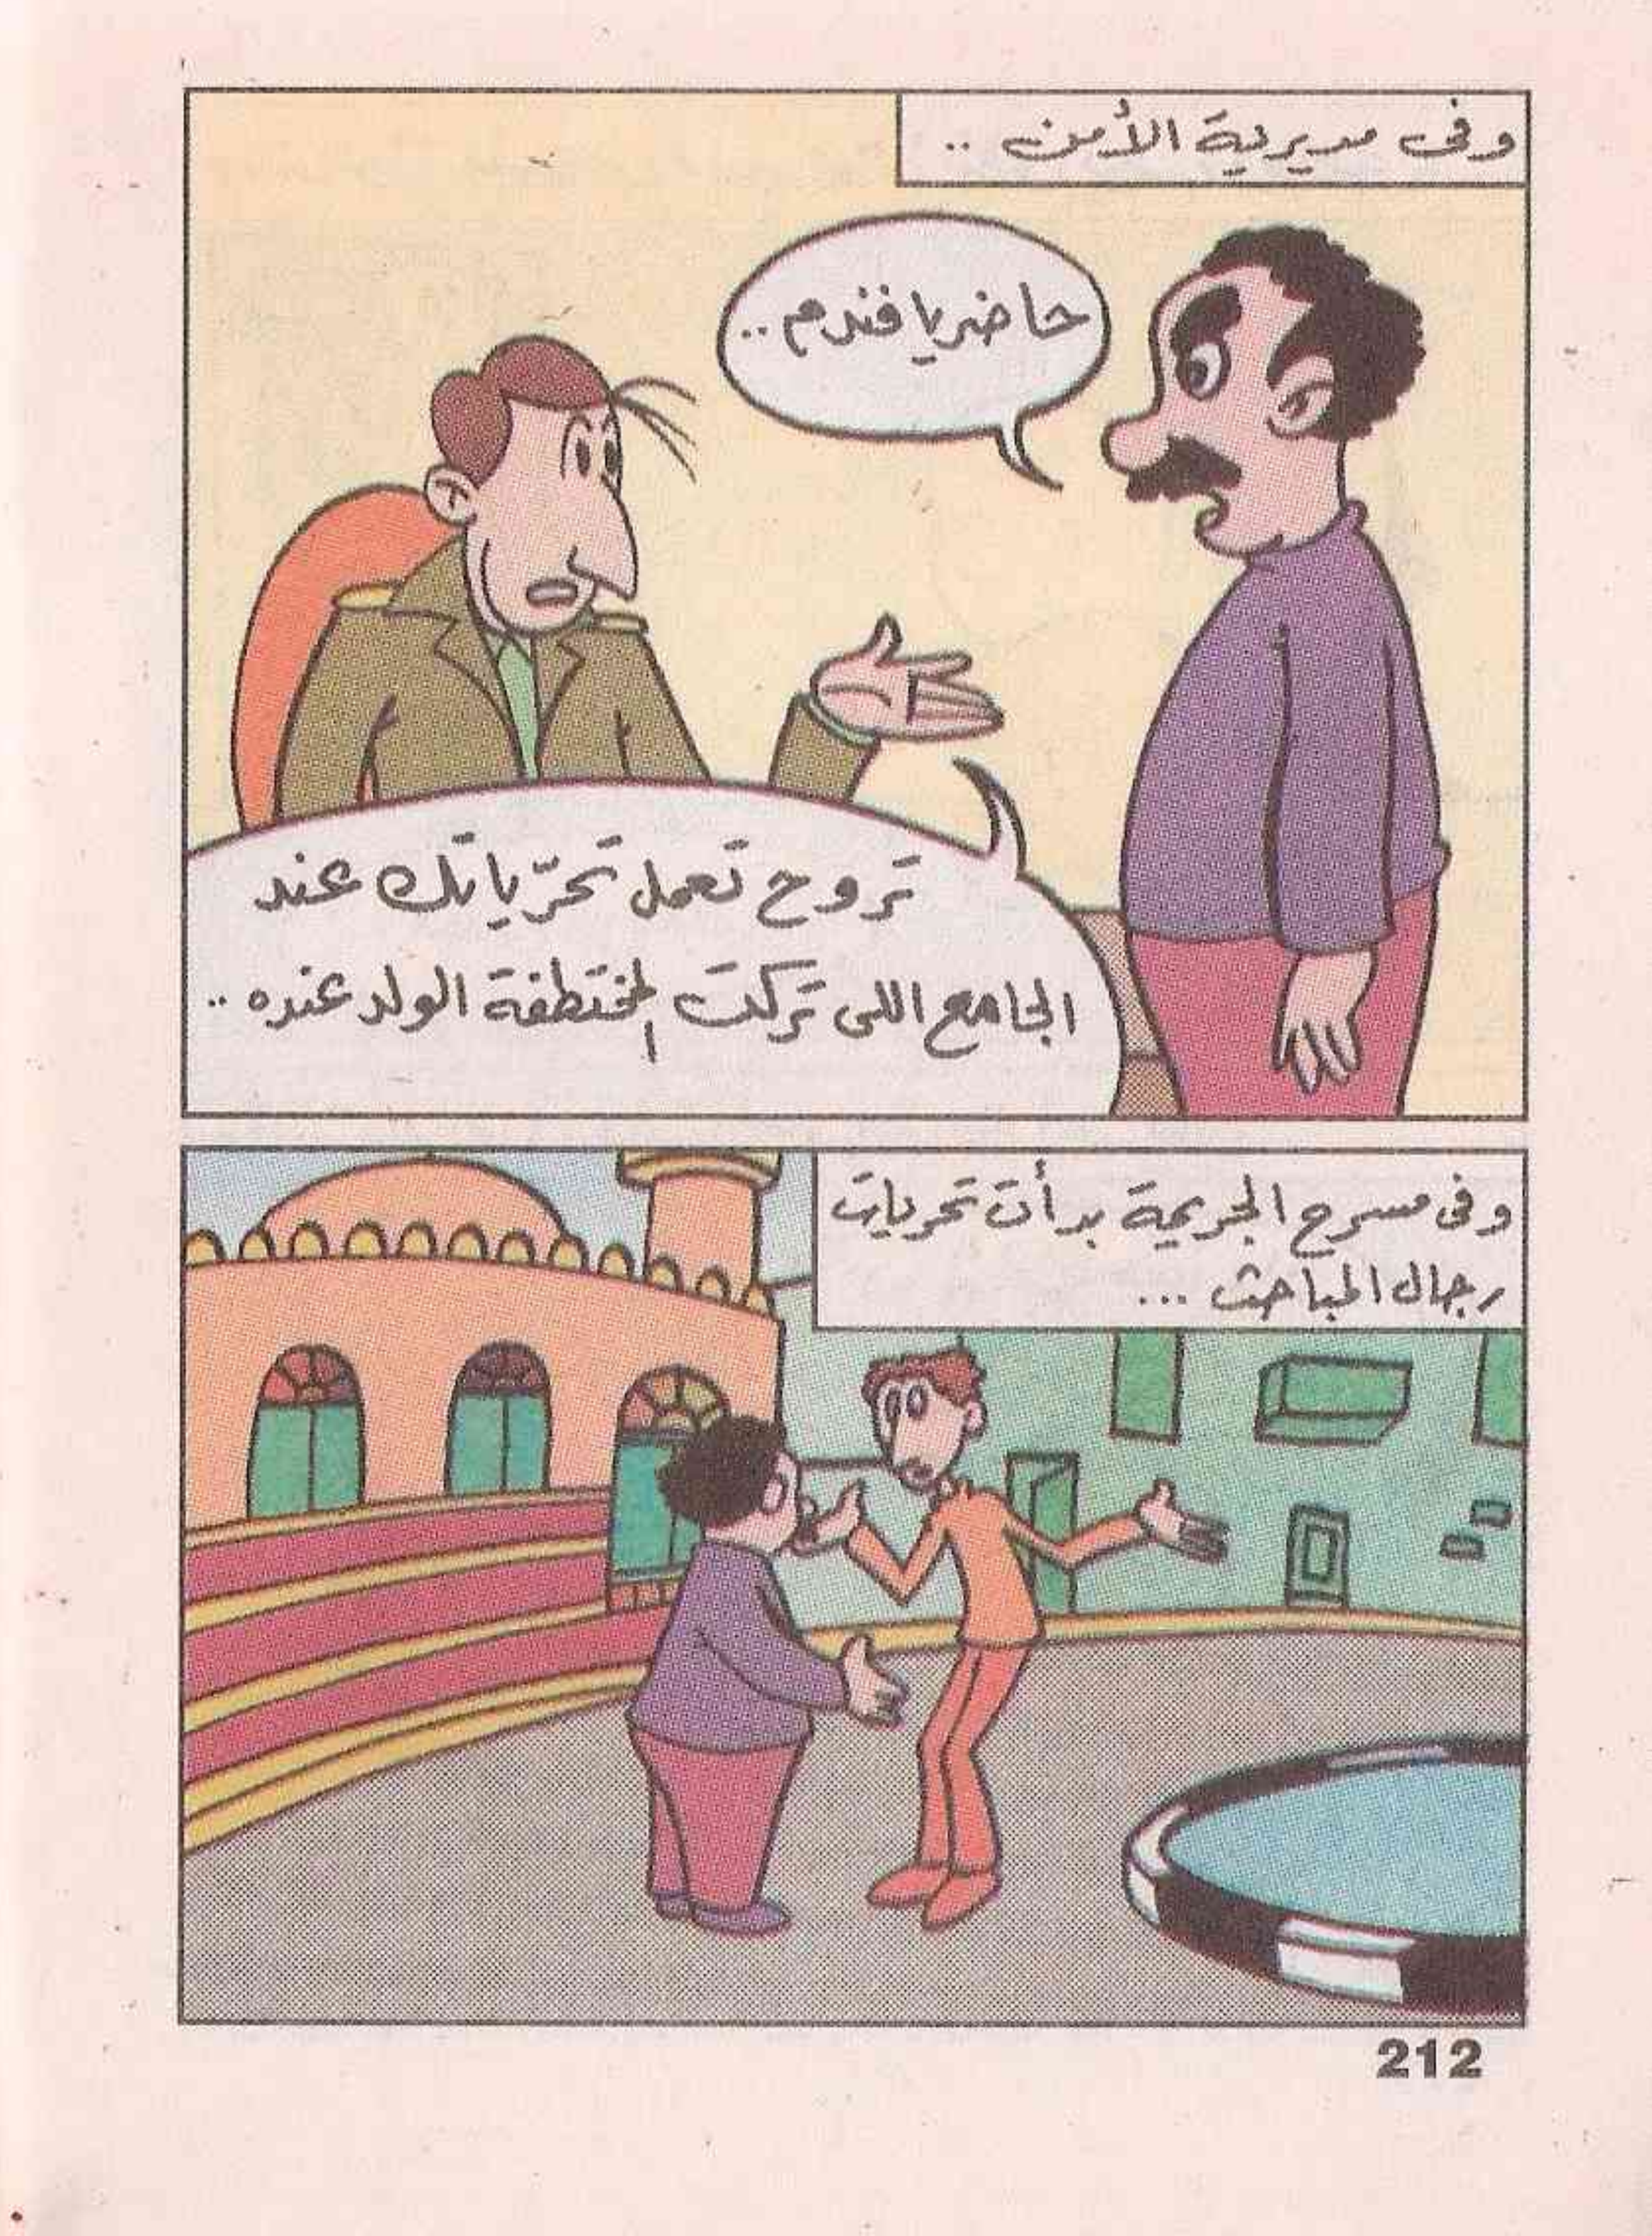 وفى مديرية الأمن ..
حاضر يا فندم ..
تروح تعمل تحرّياتك عند
الجامع اللى تركت المختطفة الولد عنده ..
وفى مسرح الجريمة بدأت تحريات
رجال المباحث ...
212